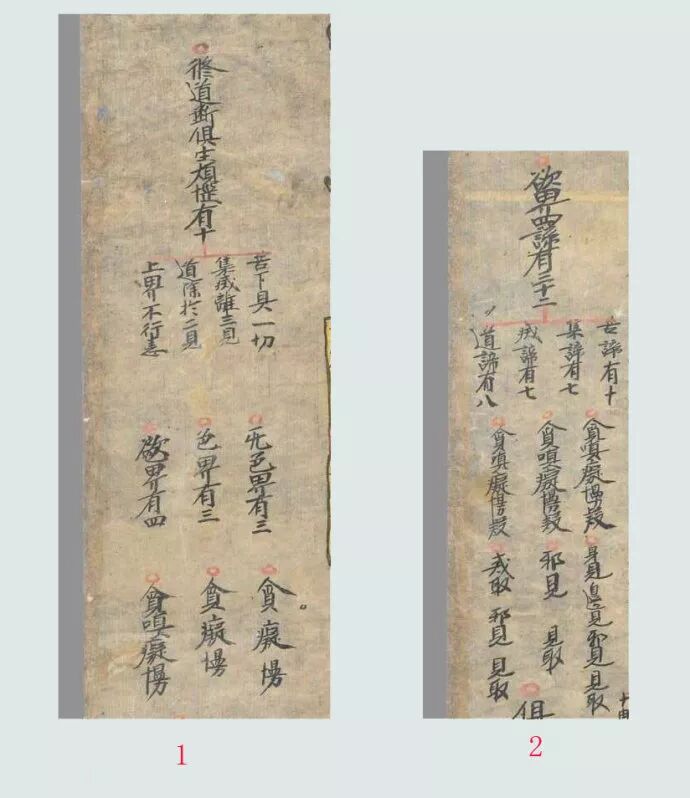 修道断俱生煩惱有十
苦下具一切
集滅離三見
道除於二見
上界不行恚
无色界有三
色界有三
欲界有四
貪癡慢
貪癡慢
貪嗔癡慢
1
欲界四諦有三十二
苦諦有十
集諦有七
滅諦有七
道諦有八
貪嗔癡慢疑
貪嗔癡慢疑
貪嗔癡慢疑
身見邊見邪見見取
邪見 見取
戒取 邪見 見取
俱
十
2